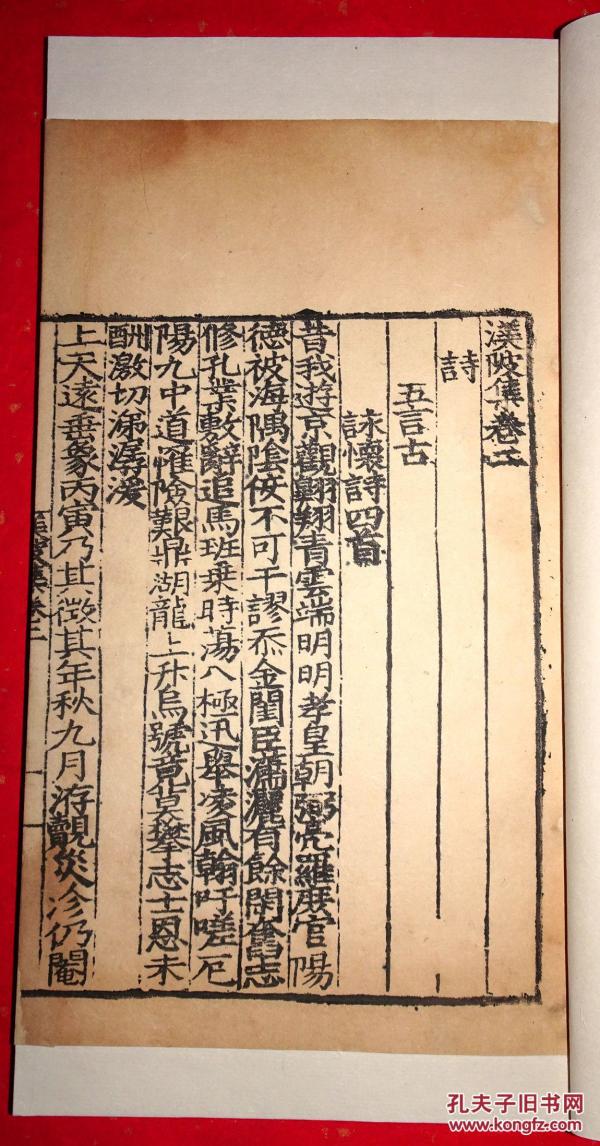 渼陂集卷二
詩
五言古
詠懷詩四首
昔我遊京觀翺翔青雲端明明孝皇朝弼亮羅庶官陽
德被海隅陰伎不可干謬忝金閨臣瀟灑有餘閑舊志
修孔業敷辭追馬班乗時蕩八極迅舉凌風翰吁嗟厄
陽九中道罹險艱鼎湖龍上升烏號竟莫攀志士恩未
酬激切涕潺湲
上天遠垂象丙寅乃其徵其年秋九月洊覩災沴仍閹
渼陂集卷二
一
孔夫子旧书网
www.kongfz.com